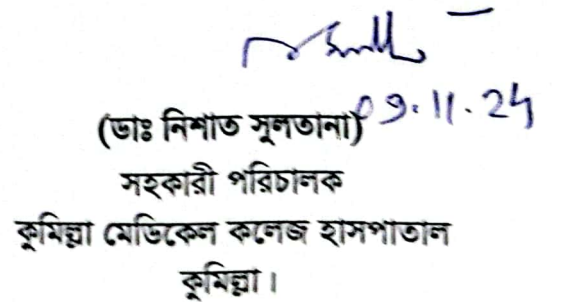 09.11.24
(ডাঃ নিশাত সুলতানা)
সহকারী পরিচালক
কুমিল্লা মেডিকেল কলেজ হাসপাতাল
কুমিল্লা।